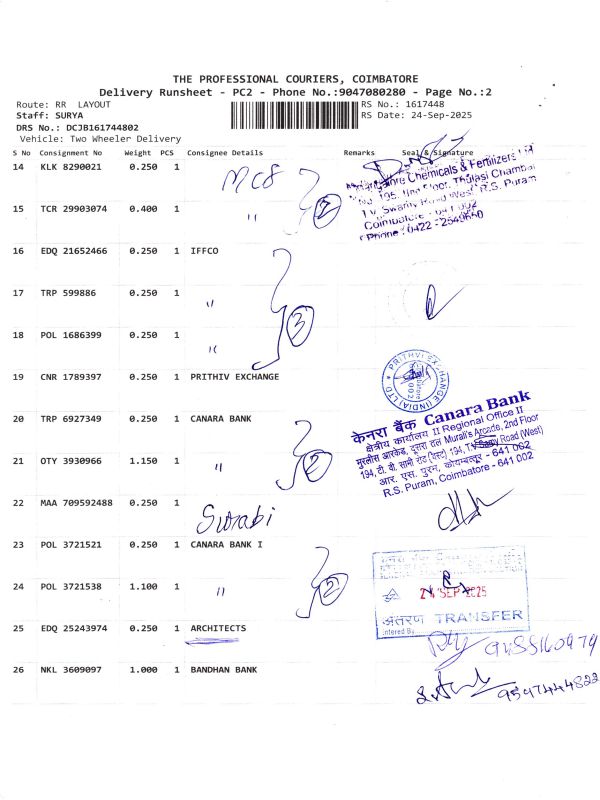 THE PROFESSIONAL COURIERS, COIMBATORE
Delivery Runsheet - PC2 - Phone No.:9047080280 - Page No.:2
Route: RR LAYOUT
RS No.: 1617448
Staff: SURYA
RS Date: 24-Sep-2025
DRS No.: DCJB161744802
Vehicle: Two Wheeler Delivery
S No Consignment No Weight PCS Consignee Details Remarks Seal & Signature
14 KLK 8290021 0.250 1 MCF
Mangalore Chemicals & Fertilizers Ltd
195, IInd Floor, Thulasi Chambers
T.V. Swamy Road West R.S. Puram
Coimbatore - 641 002
Phone : 0422 - 2549550
15 TCR 29903074 0.400 1 " 2
16 EDQ 21652466 0.250 1 IFFCO
17 TRP 599886 0.250 1 "
3
18 POL 1686399 0.250 1 "
19 CNR 1789397 0.250 1 PRITHIV EXCHANGE
PRITHVI EXCHANGE (INDIA) LTD
20 TRP 6927349 0.250 1 CANARA BANK
केनरा बैंक Canara Bank
क्षेत्रीय कार्यालय II Regional Office II
मुरलीस आरकेड, दूसरा तल Murali's Arcade, 2nd Floor
194, टी. वी. सामी रोड (वेस्ट) 194, T.V. Samy Road (West)
आर. एस. पुरम, कोयम्बत्तूर - 641 002
R.S. Puram, Coimbatore - 641 002
21 OTY 3930966 1.150 1 " 2
22 MAA 709592488 0.250 1 Surabi
23 POL 3721521 0.250 1 CANARA BANK I
24 POL 3721538 1.100 1 " 2
24 SEP 2025
अंतरण TRANSFER
Entered By
25 EDQ 25243974 0.250 1 ARCHITECTS
9488160979
26 NKL 3609097 1.000 1 BANDHAN BANK
9597444822